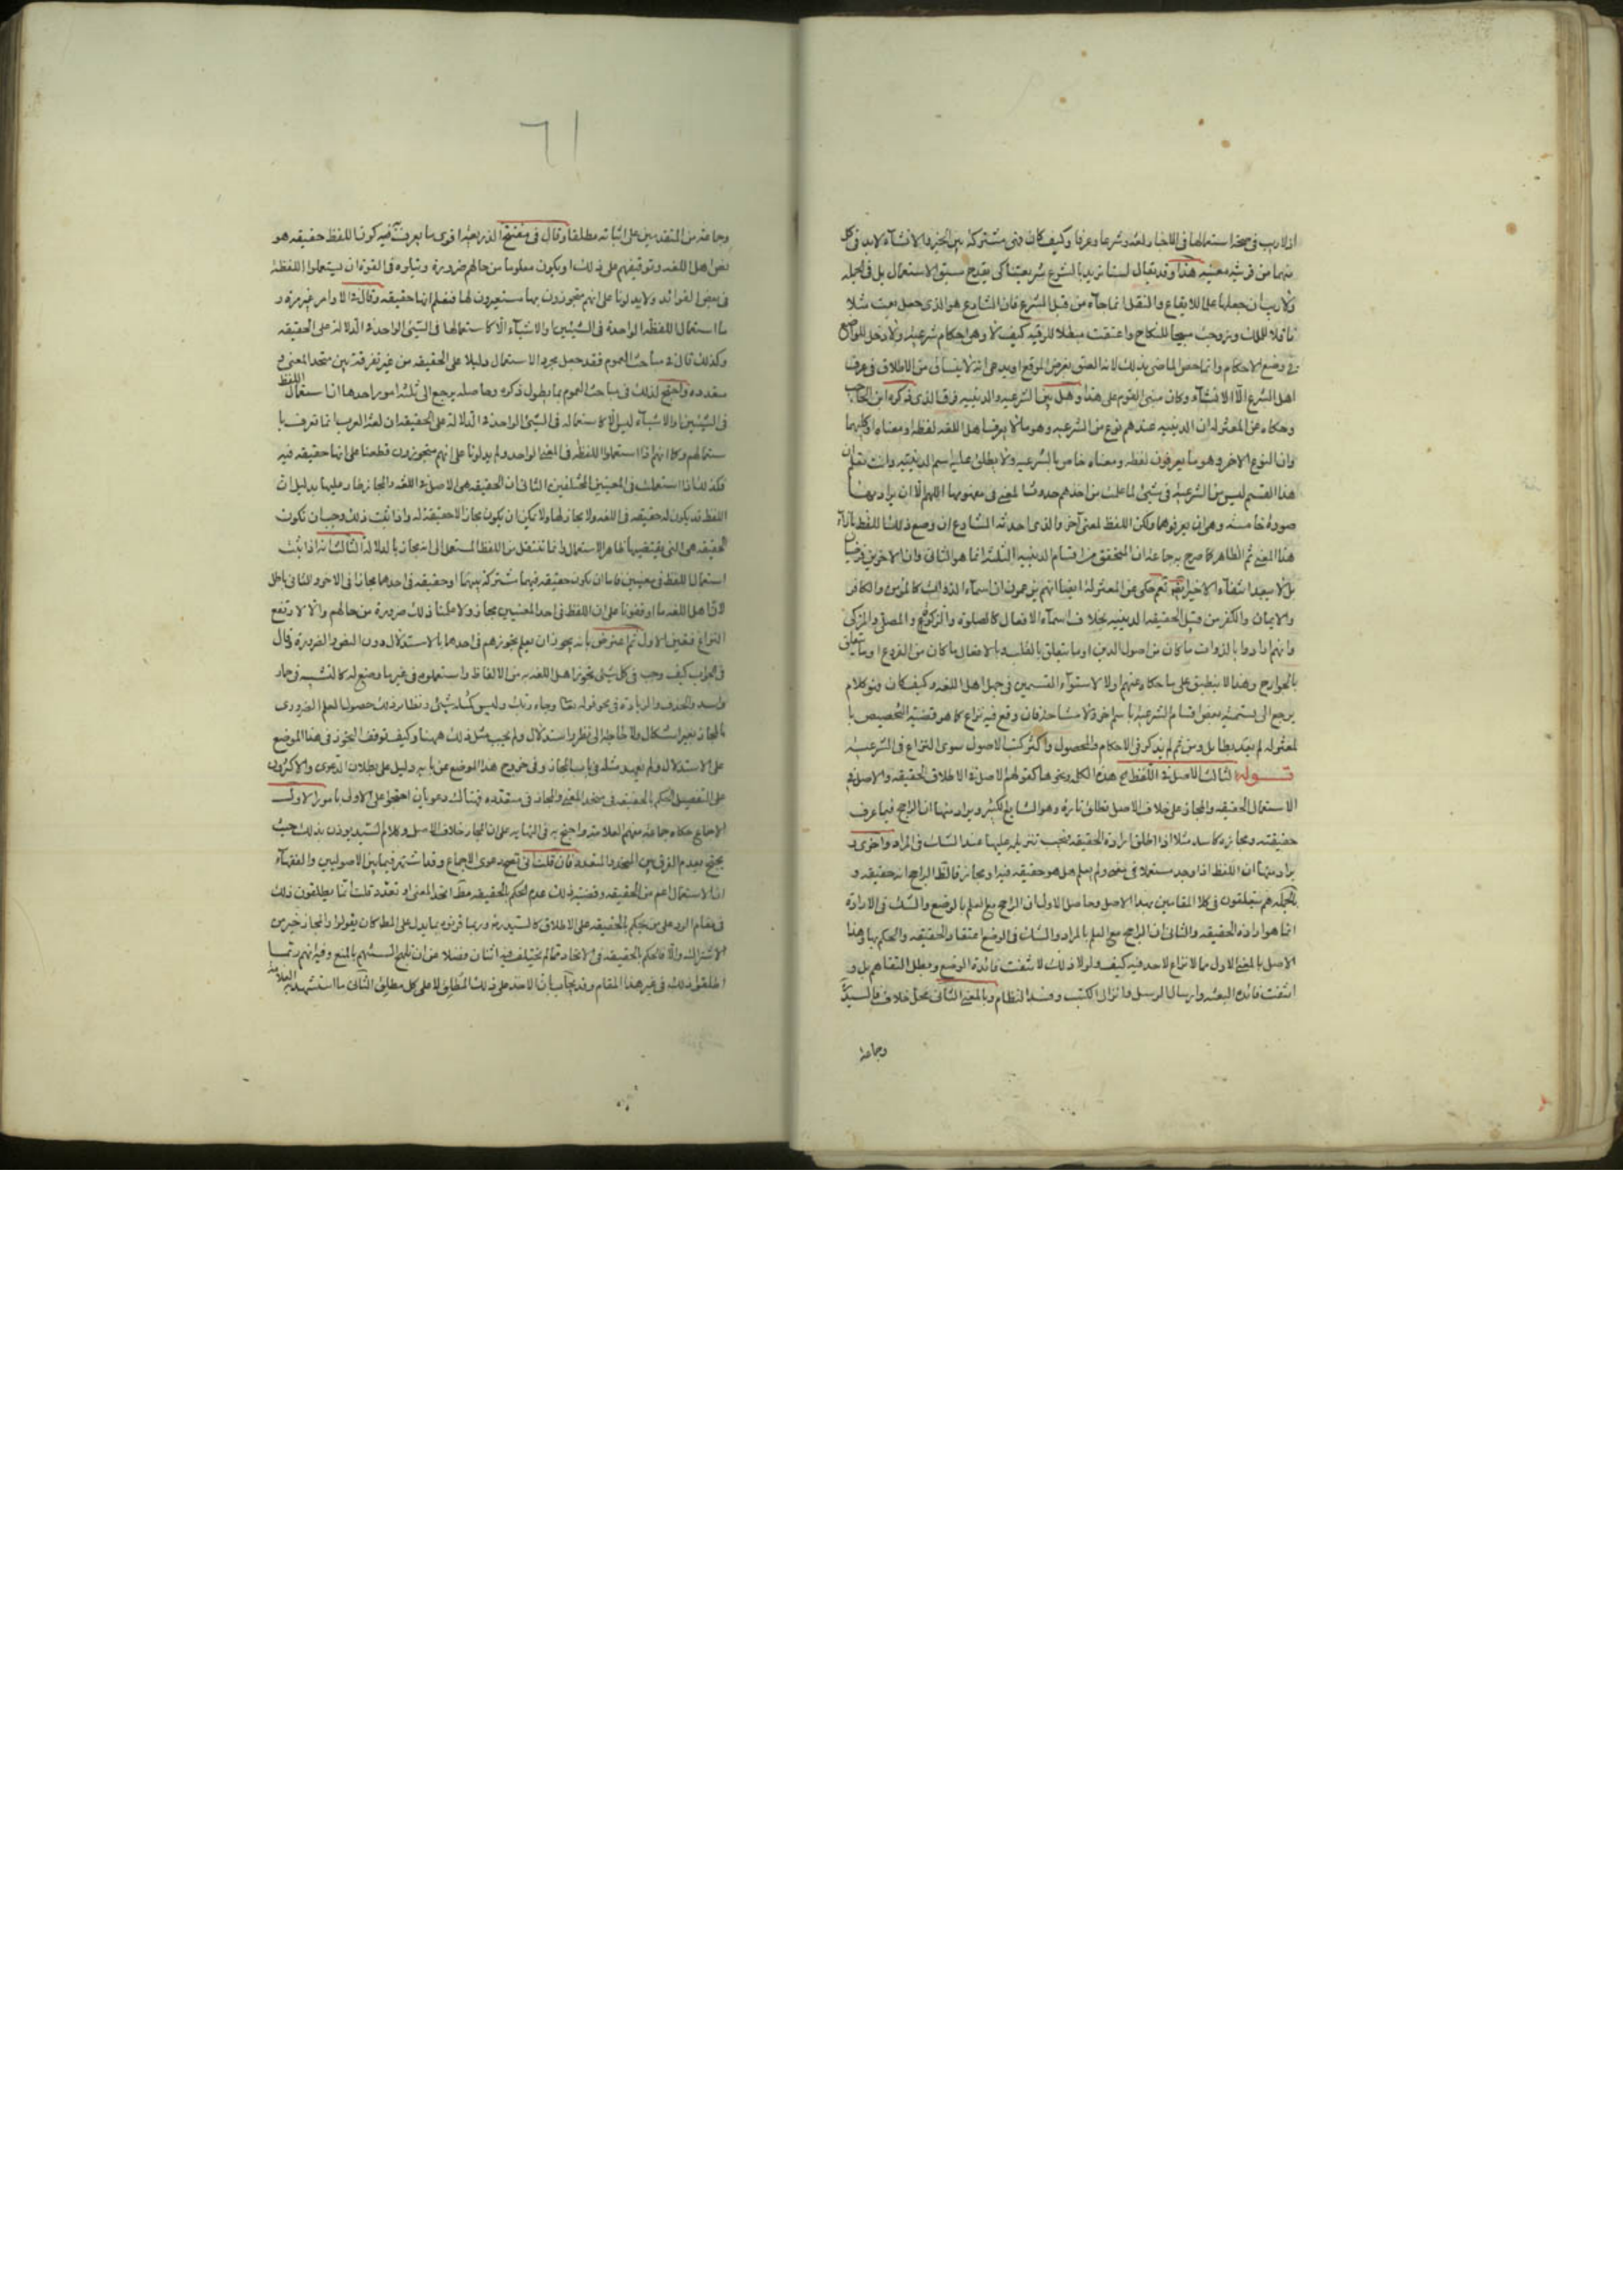 اذ لا ريب فى صحة استعمالها فى الاخبار لغة وشرعا وعرفا وكيف كان فهى مشتركة بين الخبر والانشاء لا بد فى كل
منهما من قرينة معينة هذا وقد يقال لسنا نريد بالشرع شريعتنا كى يقدح سبق الاستعمال بل فى الجملة
ولا ريب ان جعلها للايقاع والنقل انما جاء من قبل الشرع فان الشارع هو الذى جعل بعت مثلا
ناقلا للملك وزوجت مبيحا للنكاح واعتقت مبطلا للرقية كيف لا وهى احكام شرعية ولا دخل للواضع
فى وضع الاحكام وانما خص الماضى بذلك لان العتق الموقع الاطلاق فى عرف
اهل الشرع الا الانشاء وكان مبنى القوم على هذا وهل بين الشرعية والدينية فرق الذى ذكره ابن الحاجب
وحكاه عن المعتزلة ان الدينية عندهم نوع من الشرعية وهو ما لا يعرف اهل اللغة لفظه او معناه او كليهما
وان النوع الاخر وهو ما يعرفون لفظه ومعناه خاص بالشرعية ولا يطلق عليه اسم الدينية وانت تعلم ان
هذا القسم ليس من الشرعية فى شيئ لما علمت من اخذهم حدوث المعنى فى مفهومها اللهم الا ان يراد بها
صورة خامسة وهى ان يعرفوهما ولكن اللفظ لمعنى آخر والذى احدثه الشارع ان وضع ذلك اللفظ بازاء
هذا المعنى ثم الظاهر كما صرح به جماعة ان المتحقق من اقسام الدينية الثلثة انما هو الثانى وان الاخرين فرضيان
بل لا يبعد انتفاء الاخير نعم حكى عن المعتزلة ايضا انهم يزعمون ان اسماء الذوات كالمؤمن والكافر
والايمان والكفر من قبيل الحقيقة الدينية بخلاف اسماء الافعال كالصلوة والزكوة والمصلى والمزكى
وانهم ارادوا بالذوات ما كان من اصول الدين او ما يتعلق بالقلب وبالافعال ما كان من الفروع او ما يتعلق
بالجوارح وهذا لا ينطبق على ما حكاه عنهم اولا لاستواء القسمين فى جهل اهل اللغة وكيف كان فهو كلام
يرجع الى تسمية بعض اقسام الشرعية باسم اخر ولا مشاحة فان وقع فيه نزاع كما هو قضية التخصيص با
لمعتزلة لم يعد بطائل ومن ثم لم يذكر فى الاحكام والمحصول واكثر كتب الاصول سوى النزاع فى الشرعية
قوله الثالث الاصل فى اللفظ الخ هذه الكلم ونحوها كقولهم الاصل فى الاطلاق الحقيقة والاصل فى
الاستعمال الحقيقة والمجاز على خلاف الاصل تطلق تارة وهو الشايع الكثير ويراد منها ان الراجح فيما عرف
حقيقته ومجازه كاسد مثلا اذا اطلق ارادة الحقيقة فيجب تنزيله عليها عند الشك فى المراد واخرى و
يراد منها ان اللفظ اذا وجد مستعملا فى معنى ولم يعلم هل هو حقيقة فيه او مجاز فالظ الراجح انه حقيقة و
بالجملة هم يتعلقون فى كلا المقامين بهذا الاصل وحاصل الاول ان الراجح مع العلم بالوضع والشك فى الارادة
انما هو ارادة الحقيقة والثانى ان الراجح مع العلم بالمراد والشك فى الوضع اعتقاد الحقيقة والحكم بها وهذا
الاصل بالمعنى الاول مما لا نزاع لاحد فيه كيف ولولا ذلك لانتفت فائدة الوضع وبطل التفاهم بل و
انتفت فائدة البعثة وارسال الرسل وانزال الكتب وفسد النظام وبالمعنى الثانى محل خلاف فالسيد
وجماعة
٦١
وجماعة من المتقدمين على اثباته مطلقا وقال فى مفتتح الذريعة اقوى ما يعرف به كون اللفظ حقيقة هو
نص اهل اللغة وتوقيفهم على ذلك او يكون معلوما من حالهم ضرورة ويتلوه فى القوة ان يستعملوا اللفظة
فى بعض الفوائد ولا يدلونا على انهم متجوزون بها مستعيرون لها فنعلم انها حقيقة وقال فى الاوامر غير مرة و
ما استعمال اللفظة الواحدة فى الشيئين والاشياء الا كاستعمالها فى الشيئ الواحد فى الدلالة على الحقيقة
وكذلك قال فى مباحث العموم فقد جعل مجرد الاستعمال دليلا على الحقيقة من غير تفرقة بين متحد المعنى و
متعدده واحتج لذلك فى مباحث العموم بما يطول ذكره وحاصله يرجع الى ثلثة امور احدها ان استعمال اللفظ
فى الشيئين والاشياء ليس الا كاستعماله فى الشيئ الواحد فى الدلالة على الحقيقة لان لغة العرب انما تعرف با
ستعمالهم وكما انهم اذا استعملوا اللفظة فى المعنى الواحد ولم يدلونا على انهم متجوزون قطعنا على انها حقيقة فيه
فكذلك اذا استعملت فى المعنيين المختلفين الثانى ان الحقيقة هى الاصل فى اللغة والمجاز طار عليها بدليل ان
اللفظ قد يكون له حقيقة فى اللغة ولا مجاز لها ولا يمكن ان يكون مجاز الا حقيقة له واذا ثبت ذلك وجب ان تكون
الحقيقة هى التى يقتضيها ظاهر الاستعمال وانما ننتقل من اللفظ المستعمل الى انه مجاز بالدلالة الثالث انه اذا ثبت
استعمال اللفظ فى معنيين فاما ان يكون حقيقة فيهما مشتركة بينهما او حقيقة فى احدهما مجازا فى الاخر والثانى باطل
لان اهل اللغة ما اوقفونا على ان اللفظ فى احد المعنيين مجاز ولا علمنا ذلك ضرورة من حالهم والا لارتفع
النزاع فتعين الاول ثم اعترض بانه يجوز ان يعلم تجوزهم فى احدهما بالاستدلال دون النص والضرورة وقال
فى الجواب كيف وجب فى كل شيئ تجوز اهل اللغة به من الالفاظ واستعملوه فى غير ما وضع له كالتشبيه فى حمار
واسد والحذف والزيادة فى نحو قوله تعا وجاء ربك وليس كمثله شيئ ونظائر ذلك حصول العلم الضرورى
بالمجاز بغير اشكال ولا حاجة الى نظر واستدلال ولم يجب مثل ذلك ههنا وكيف توقف التجوز فى هذا الموضع
على الاستدلال ولم نعهد مثله فى باب المجاز وفى خروج هذا الموضع عن بابه دليل على بطلان الدعوى والاكثرون
على التفصيل الحكم بالحقيقة فى متحد المعنى والمجاز فى متعدده فهنالك دعويان احتجوا على الاولى بامور الاول
الاجماع حكاه جماعة منهم العلامة واحتج به فى النهاية على ان المجاز خلاف الاصل وكلام السيد يؤذن بذلك حيث
يحتج بعدم الفرق بين المتحد والمتعدد فان قلت انى تصح دعوى الاجماع وقد اشتهر فيما بين الاصوليين والفقهاء
ان الاستعمال اعم من الحقيقة وقضية ذلك عدم الحكم بالحقيقة مطلقا اتحد المعنى او تعدد قلت انما يطلقون ذلك
فى مقام الرد على من يحكم بالحقيقة على الاطلاق كالسيد ره وربما قرنوه بما يدل على المط كان يقولوا والمجاز خير من
الاشتراك والا فالحكم بالحقيقة فى الاتحاد مما لم يختلف فيه اثنان فضلا عن ان السنتهم بالمنع وفيه انهم ربما
اطلقوا ذلك فى غير هذا المقام وقد يجاب بان الاخذ على ذلك المطلق لا على كل مطلق الثانى ما استشهد به العلامة